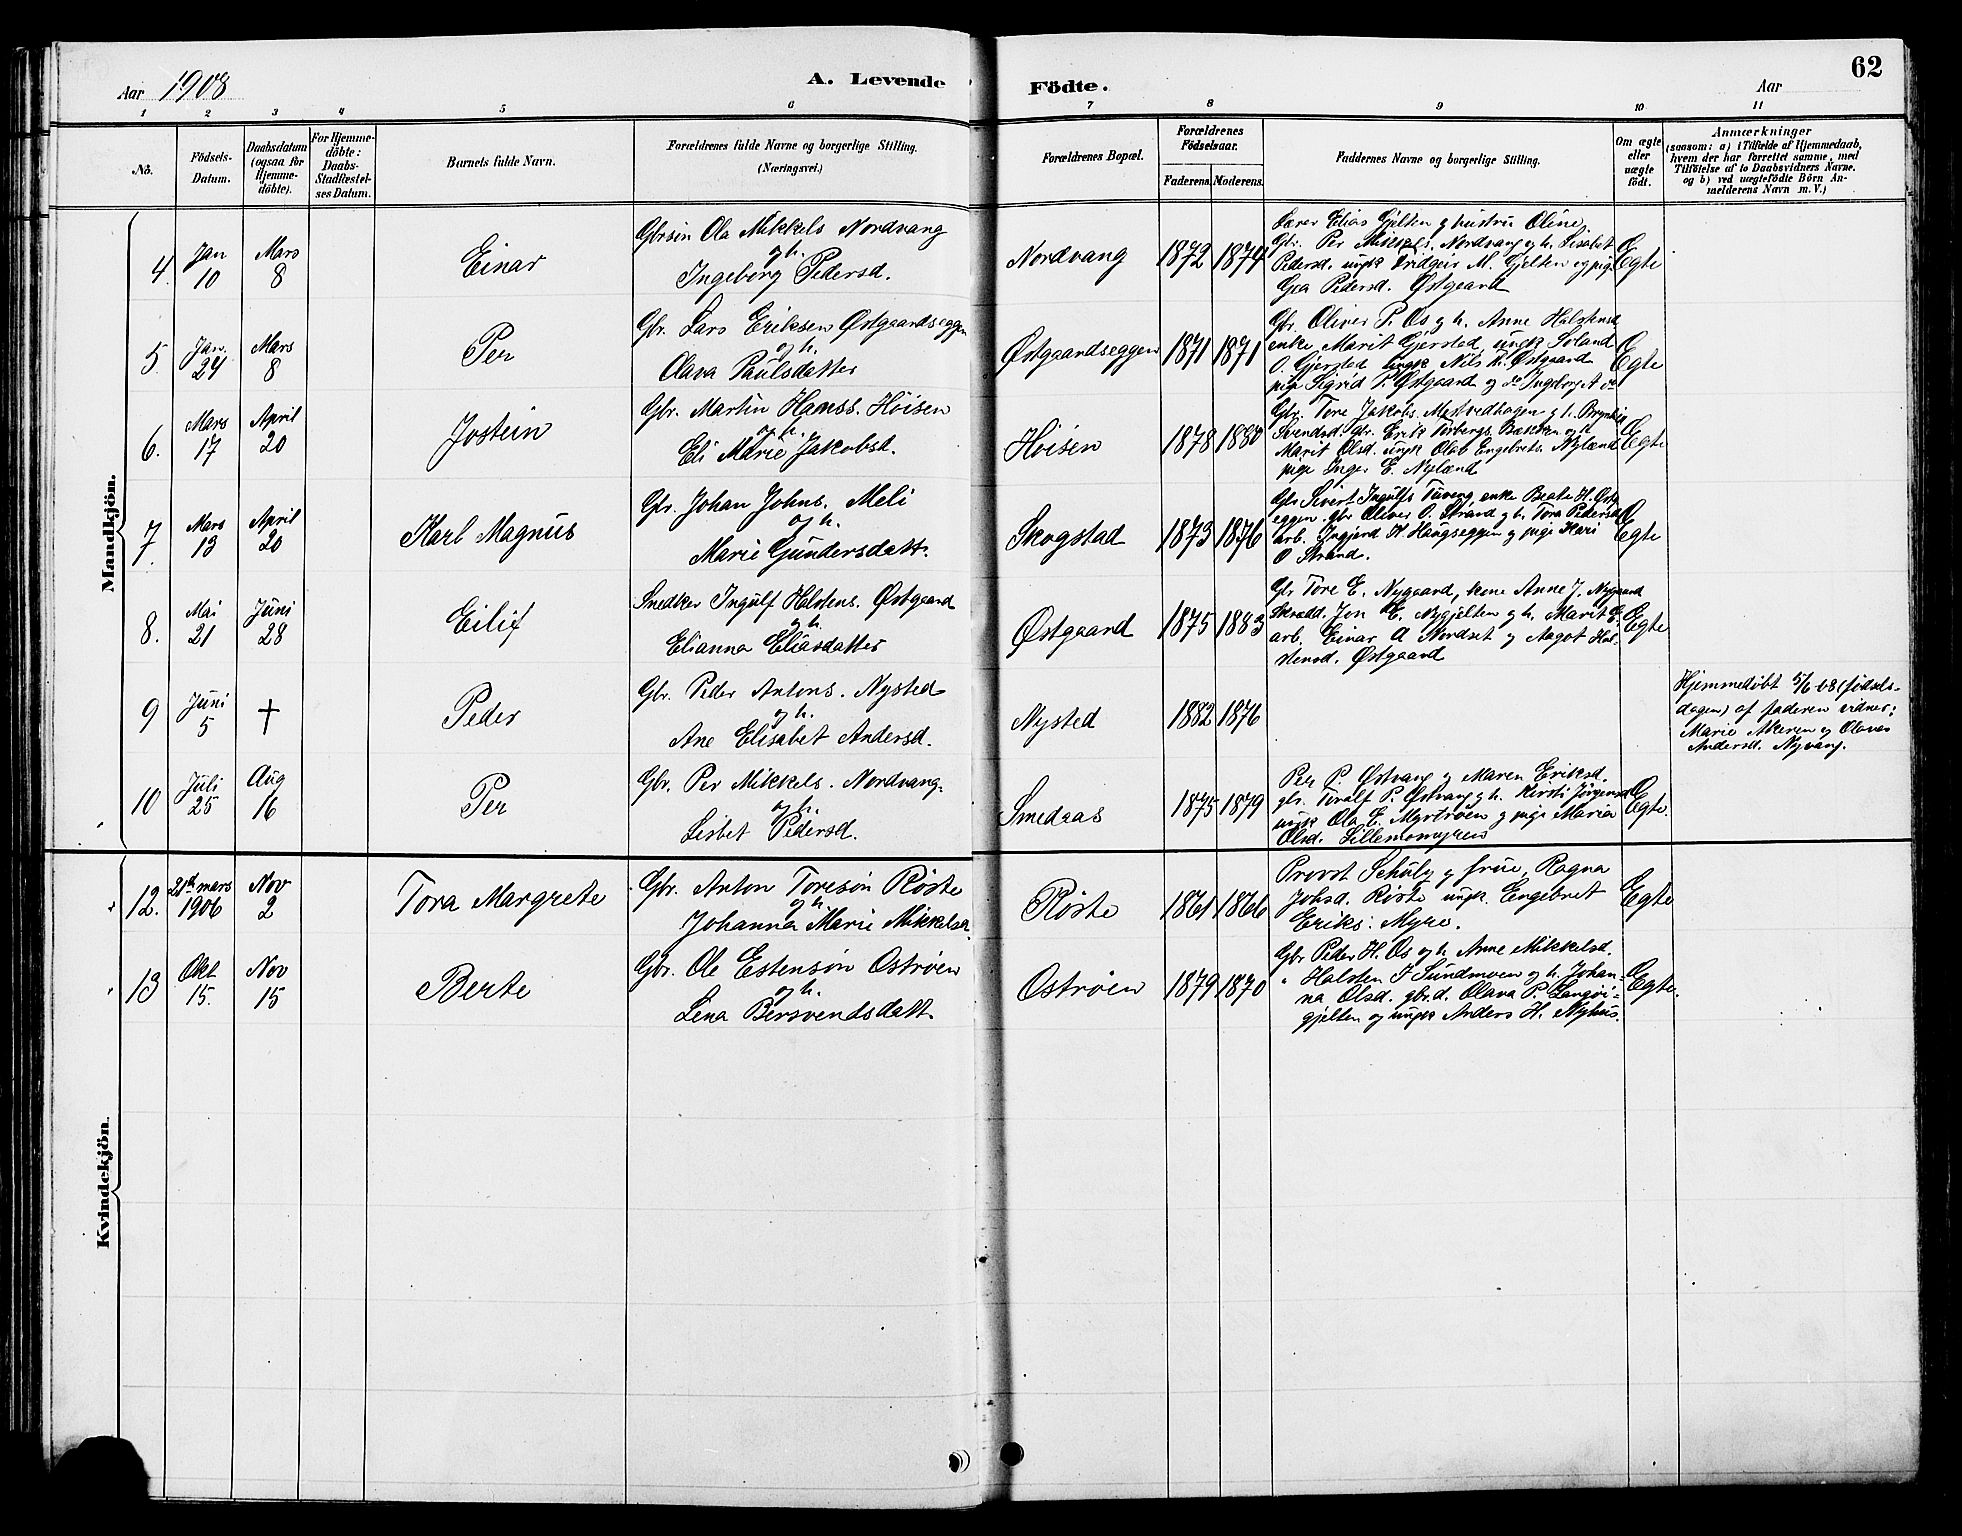 Aar 1908
A. Levende
Födte.
Aar
62
1 2 3 4 5 6 7 8 9 10 11
No.
Födsels-
Datum.
Daabsdatum
(ogsaa for
Hjemme-
döbte).
For Hjemme-
döbte:
Daabs-
Stadfæstel-
ses Datum.
Barnets fulde Navn.
Forældrenes fulde Navne og borgerlige Stilling.
(Næringsvei.)
Forældrenes Bopæl.
Forældrenes
Födselsaar.
Faderens. Moderens.
Faddernes Navne og borgerlige Stilling.
Om ægte
eller
uægte
födt.
Anmærkninger
(saasom: a) i Tilfælde af Hjemmedaab,
hvem der har forrettet samme, med
Tilföielse af to Daabsvidners Navne.
og b) ved uægtefödte Börn An-
melderens Navn m. V.)
Mandkjön.
4. Jan 10 Mars 8 Einar
Gbrsøn Ola Mikkels Nordvang
og h.
Ingeborg Pedersd.
Nordvang 1872 1874
Lærer Elias Gjelten g hustru Oline,
Gbr. Per Mikkels. Nordvang og h. Lisabet
Pedersd. ungk Fridgeir M. Gjelten og pige
Gea Pedersd. Østgaard
Egte
5. Jan. 24 Mars 8 Per
Gbr. Lars Eriksen Østgaardseggen
og h.
Olava Paulsdatter
Østgaardseggen 1871 1871
Gbr. Oliver P. Os og h. Anne Halstensd
enke Marit Gjersted, ungk Joland
O. Gjersted ungk Nils Th. Østgaard
pige Sigrid P. Østgaard g do Ingeborg A do
Egte
6. Mars 17 April 20 Jostein
Gbr. Martin Hanss. Høisen
og h.
Eli Marie Jakobsd.
Høisen 1878 1880
Gbr. Tore Jakobs. g h.
Svendsd. Gbr. Erik Torbergs. Bakken og h
Marit Olsd. ungk Olab Engebrets. Nyland
pige Inger E. Nyland
Egte
7. Mars 13 April 20 Karl Magnus
Gbr. Johan Johns. Meli
og h.
Marie Gundersdatt.
Skogstad 1873 1876
Gbr Sivert Ingulfs Tuveng, enke Beate H. Østg
eggen. gbr Oliver O. Strand g h. Tora Pedersd
arb. Ingjerd H. Haugseggen g pige Kari
O Strand.
Egte
8. Mai 21 Juni 28 Eilif
Snedker Ingulf Halstens. Østgaard
og h.
Elianna Eliasdatter
Østgaard 1875 1883
Gbr Tore E. Nygaard, kone Anne J. Nygaard
Skrædd. Jon E. Nygjelten g h. Marit E.
arb. Einar A Nordset g Aagot Hal-
stensd. Østgaard
Egte
9 Juni 5 † Peder
Gbr. Peder Antons. Nysted
og h.
Ane Elisabet Andersd.
Nysted 1882 1876
Hjemmedøbt 5/6 08 (fødsels-
dagen) af faderen vidner:
Marie Akeren g Olava
Andersd. Nyvang.
10 Juli 25 Aug 16 Per
Gbr. Per Mikkels. Nordvang.
og h.
Lisbet Pedersd.
Smedaas 1875 1879
Per P. Østvang g Maren Eriksd.
gbr. Torulf P. Østvang g h. Kirsti Jørgensd
ungk Ola E. Myrtrøen g pige Maria
Olsd. Lillemomyren
Egte.
Kvindekjön.
12. 21st mars 1906 Nov 2 Tora Margrete
Gbr. Anton Toresøn Røste
og h.
Johanna Marie Mikkelsd.
Røste 1861 1866
Provst Schulz g frue, Ragna
Johsd. Røste ungk. Engebret
Eriks: Myre.
Egte
13 Okt 15. Nov 15 Berte
Gbr. Ole Estensøn Ostrøen
og h.
Lena Bersvendsdatt.
Ostrøen 1879 1870
Gbr Peder H. Os og h. Anne Mikkelsd.
" Halsten J Sundmoen og h. Johan-
na Olsd. gbr.d. Olava P. Langøi-
gjelten og ungk Anders H. Nyhus.
Egte.